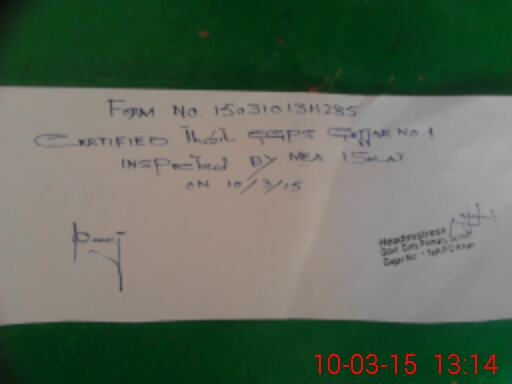 FORM NO. 150310131H285
CERTIFIED That GGPS Gajjar No. 1
INSPECTED BY MEA ISMAT
ON 10/3/15
Headmistress
Govt Girls Primary School
10-03-15 13:14